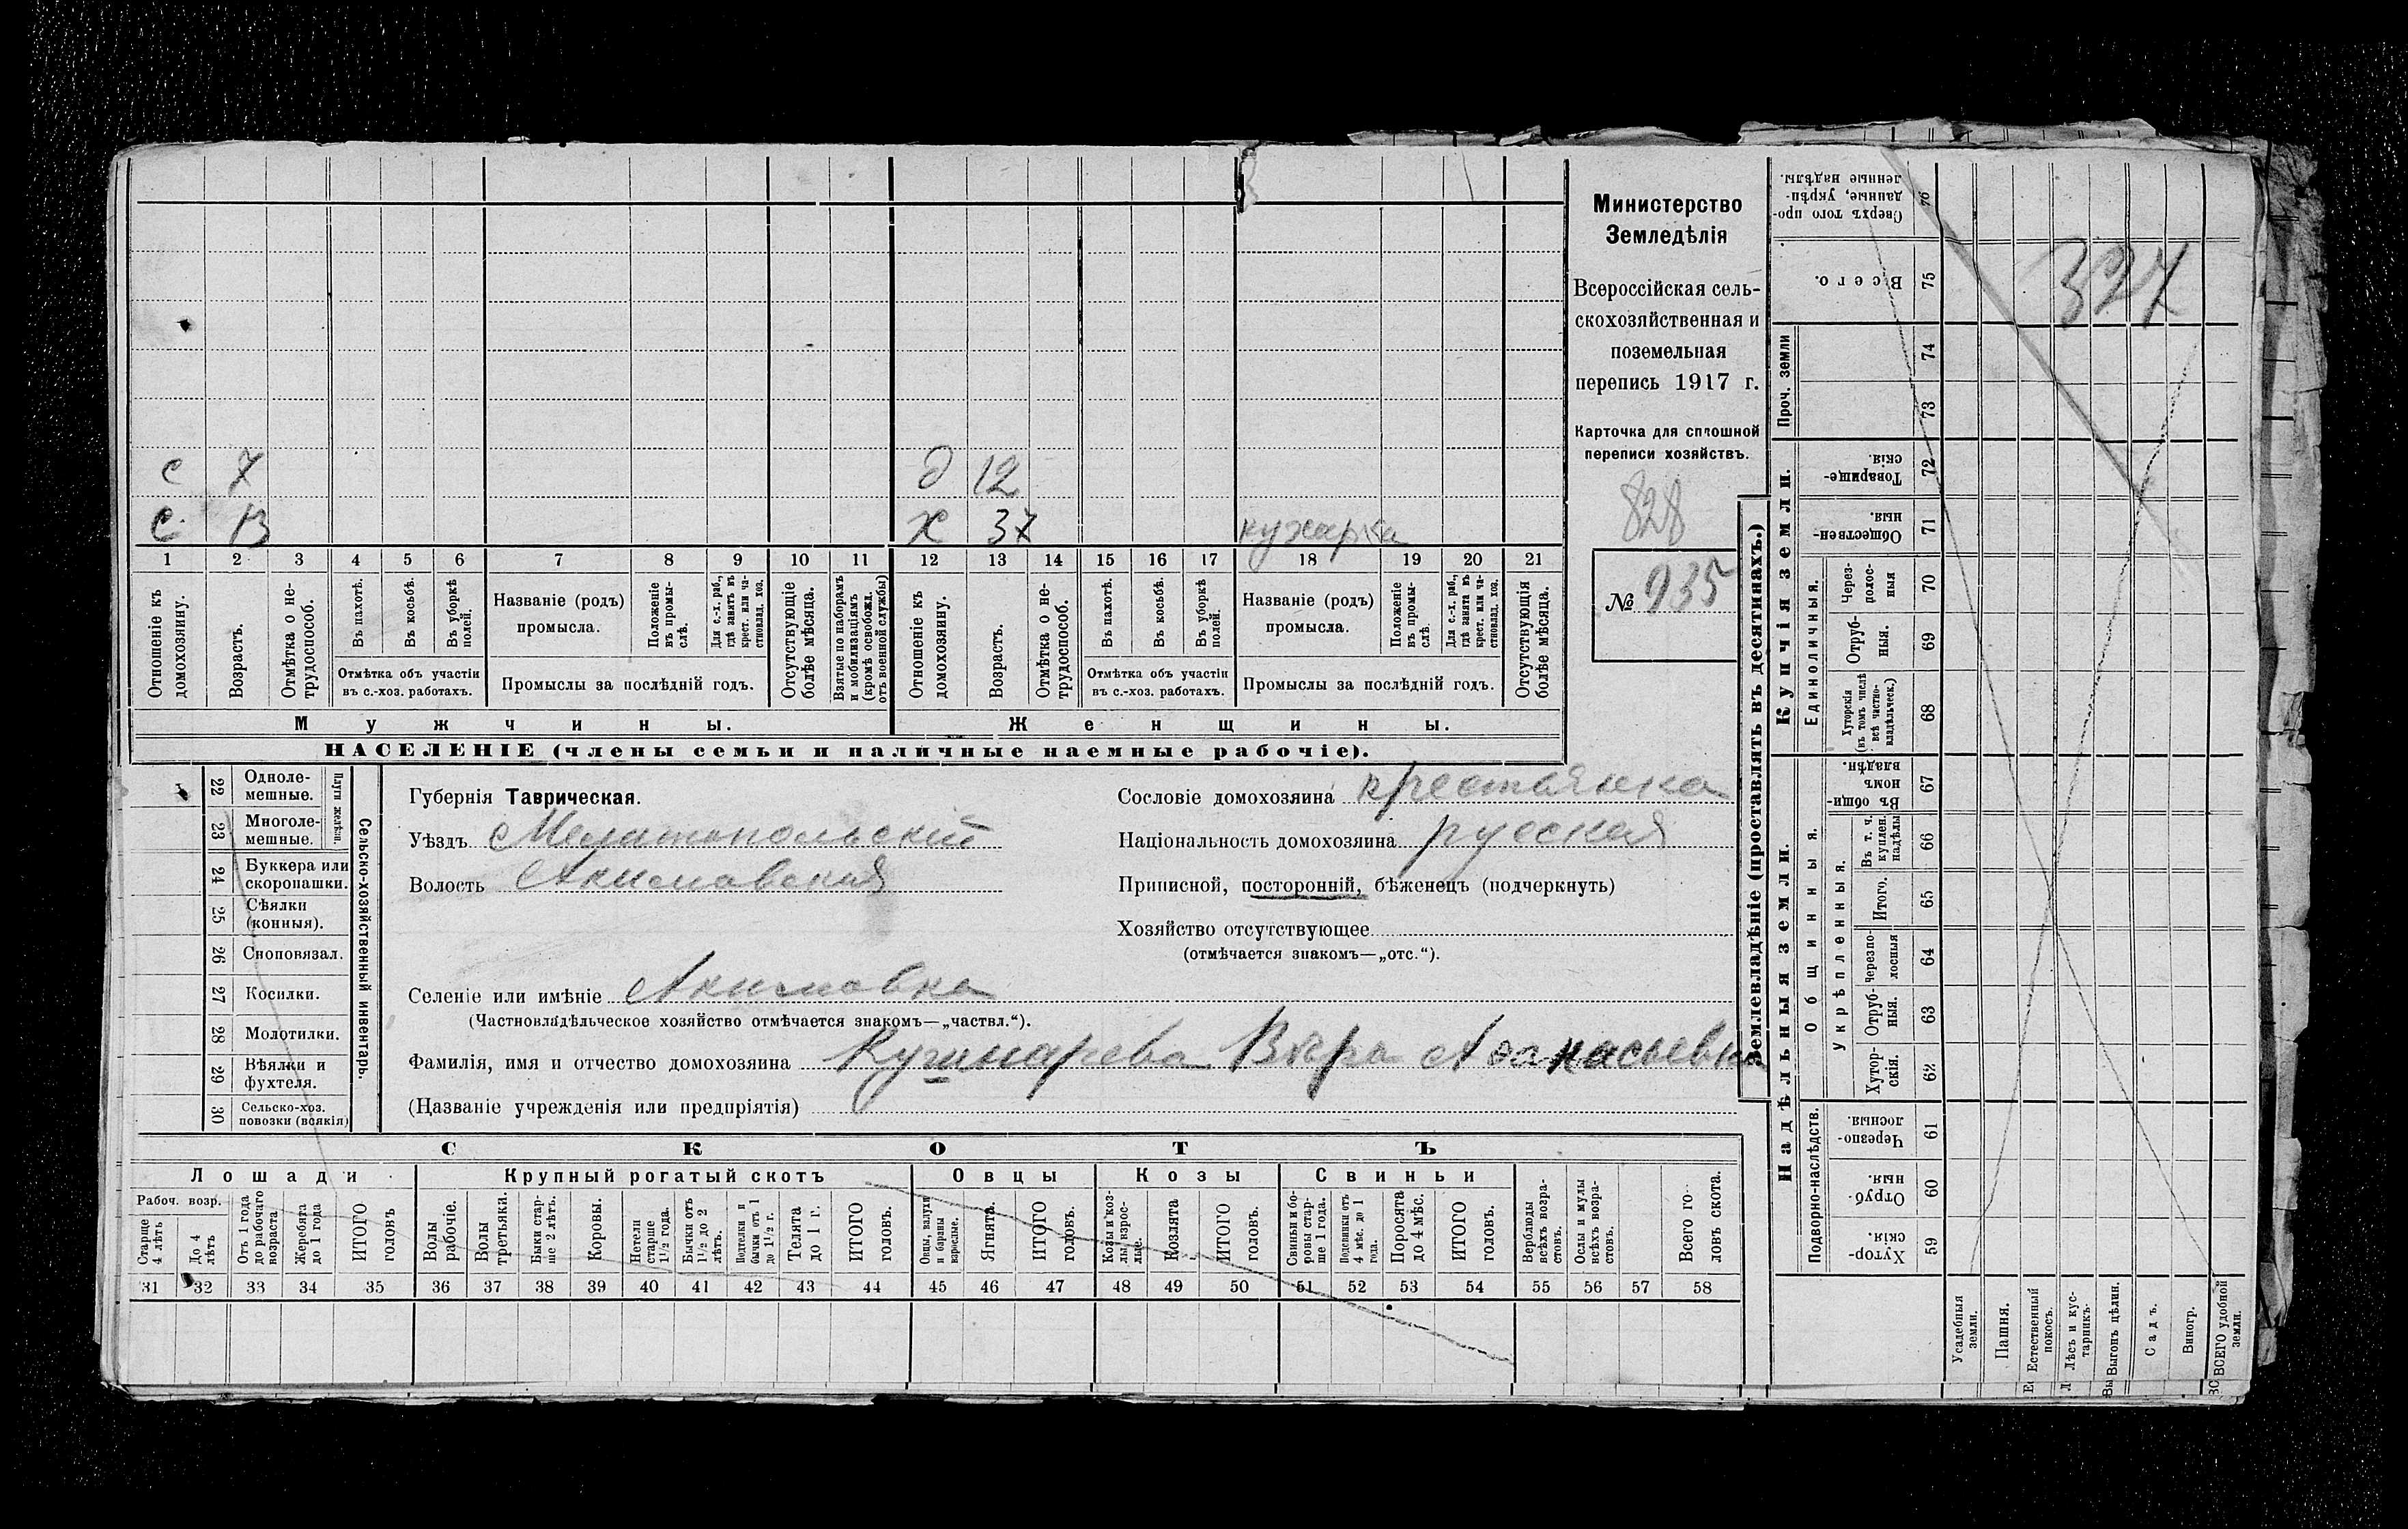 Министерство
Земледѣлія
Всероссійская сель-
скохозяйственная и
поземельная
перепись 1917 г.
Карточка для сплошной
переписи хозяйствъ.
828
№ 935
с 7
с. 13
д 12
х 37 кухарка
1 2 3 4 5 6 7 8 9 10 11 12 13 14 15 16 17 18 19 20 21
Отношеніе къ домохозяину.
Возрастъ.
Отмѣтка о не-трудоспособ.
Въ пахотѣ.
Въ косьбѣ.
Въ уборкѣ полей.
Отмѣтка объ участіи
въ с.-хоз. работахъ.
Названіе (родъ)
промысла.
Положеніе въ промы-слѣ.
Для с.-х. раб., гдѣ занятъ въ крест. или ча-стновлад. хоз.
Промыслы за послѣдній годъ.
Отсутствующіе болѣе мѣсяца.
Взятые по наборамъ и мобилизаціямъ (кромѣ освобожд. отъ военной службы)
Отношеніе къ домохозяину.
Возрастъ.
Отмѣтка о не-трудоспособ.
Въ пахотѣ.
Въ косьбѣ.
Въ уборкѣ полей.
Отмѣтка объ участіи
въ с.-хоз. работахъ.
Названіе (родъ)
промысла.
Положеніе въ промы-слѣ.
Для с.-х. раб., гдѣ занята въ крест. или ча-стновлад. хоз.
Промыслы за послѣдній годъ.
Отсутствующія болѣе мѣсяца.
Мужчины.
Женщины.
НАСЕЛЕНІЕ (члены семьи и наличные наемные рабочіе).
22 Одноле-мешные.
23 Многоле-мешные.
Плуги желѣзн.
24 Буккера или скоропашки.
25 Сѣялки (конныя).
26 Сноповязал.
27 Косилки.
28 Молотилки.
29 Вѣялки и фухтеля.
30 Сельско-хоз. повозки (всякія)
Сельско-хозяйственный инвентарь.
Губернія Таврическая.
Уѣздъ Мелитопольскій
Волость Акимовская
Селеніе или имѣніе Акимовка
(Частновладѣльческое хозяйство отмѣчается знакомъ—„частвл.“).
Фамилія, имя и отчество домохозяина Кушнарева Вѣра Афанасьевна
(Названіе учрежденія или предпріятія)
Сословіе домохозяина крестьянка
Національность домохозяина русская
Приписной, посторонній, бѣженецъ (подчеркнуть)
Хозяйство отсутствующее
(отмѣчается знакомъ—„отс.“).
СКОТЪ
Лошади
Крупный рогатый скотъ
Овцы
Козы
Свиньи
Рабоч. возр.
Старше 4 лѣтъ
До 4 лѣтъ
Отъ 1 года до рабочаго возраста
Жеребята до 1 года
ИТОГО головъ
Волы рабочіе.
Волы третьяки.
Быки стар-ше 2 лѣтъ.
Коровы.
Нетели старше 1½ года.
Бычки отъ 1½ до 2 лѣтъ.
Подтелки и бычки отъ 1 до 1½ г.
Телята до 1 г.
ИТОГО головъ.
Овцы, валухи и бараны взрослые.
Ягнята.
ИТОГО головъ.
Козы и коз-лы взрос-лые.
Козлята
ИТОГО головъ.
Свиньи и бо-ровы стар-ше 1 года.
Подсвинки отъ 4 мѣс. до 1 года.
Поросята до 4 мѣс.
ИТОГО головъ.
Верблюды всѣхъ возра-стовъ.
Ослы и мулы всѣхъ возра-стовъ.
Всего го-ловъ скота.
31 32 33 34 35 36 37 38 39 40 41 42 43 44 45 46 47 48 49 50 51 52 53 54 55 56 57 58
Землевладѣніе (проставлять въ десятинахъ.)
Купчія земли.
Надѣльныя земли.
Сверхъ того про-данные, укрѣп-ленные надѣлы. 76
Всего. 75
327
Проч. земли
74
73
Товарище-скія. 72
Обществен-ныя. 71
Единоличныя.
Через-полос-ныя 70
Отруб-ныя. 69
Хуторскія (въ томъ числѣ всѣ частно-владѣльческ.) 68
Общинныя.
Въ общи-номъ владѣн. 67
Укрѣпленныя.
Въ т. ч. куплен. надѣлы 66
Итого. 65
Черезпо-лосныя 64
Отруб-ныя. 63
Хутор-скія. 62
Подворно-наслѣдств.
Черезпо-лосныя. 61
Отруб-ныя. 60
Хутор-скія. 59
Усадебныя земли.
Пашня.
Естественный покосъ.
Лѣсъ и кус-тарникъ.
Выгонъ цѣлин.
Садъ.
Виногр.
ВСЕГО удобной земли.